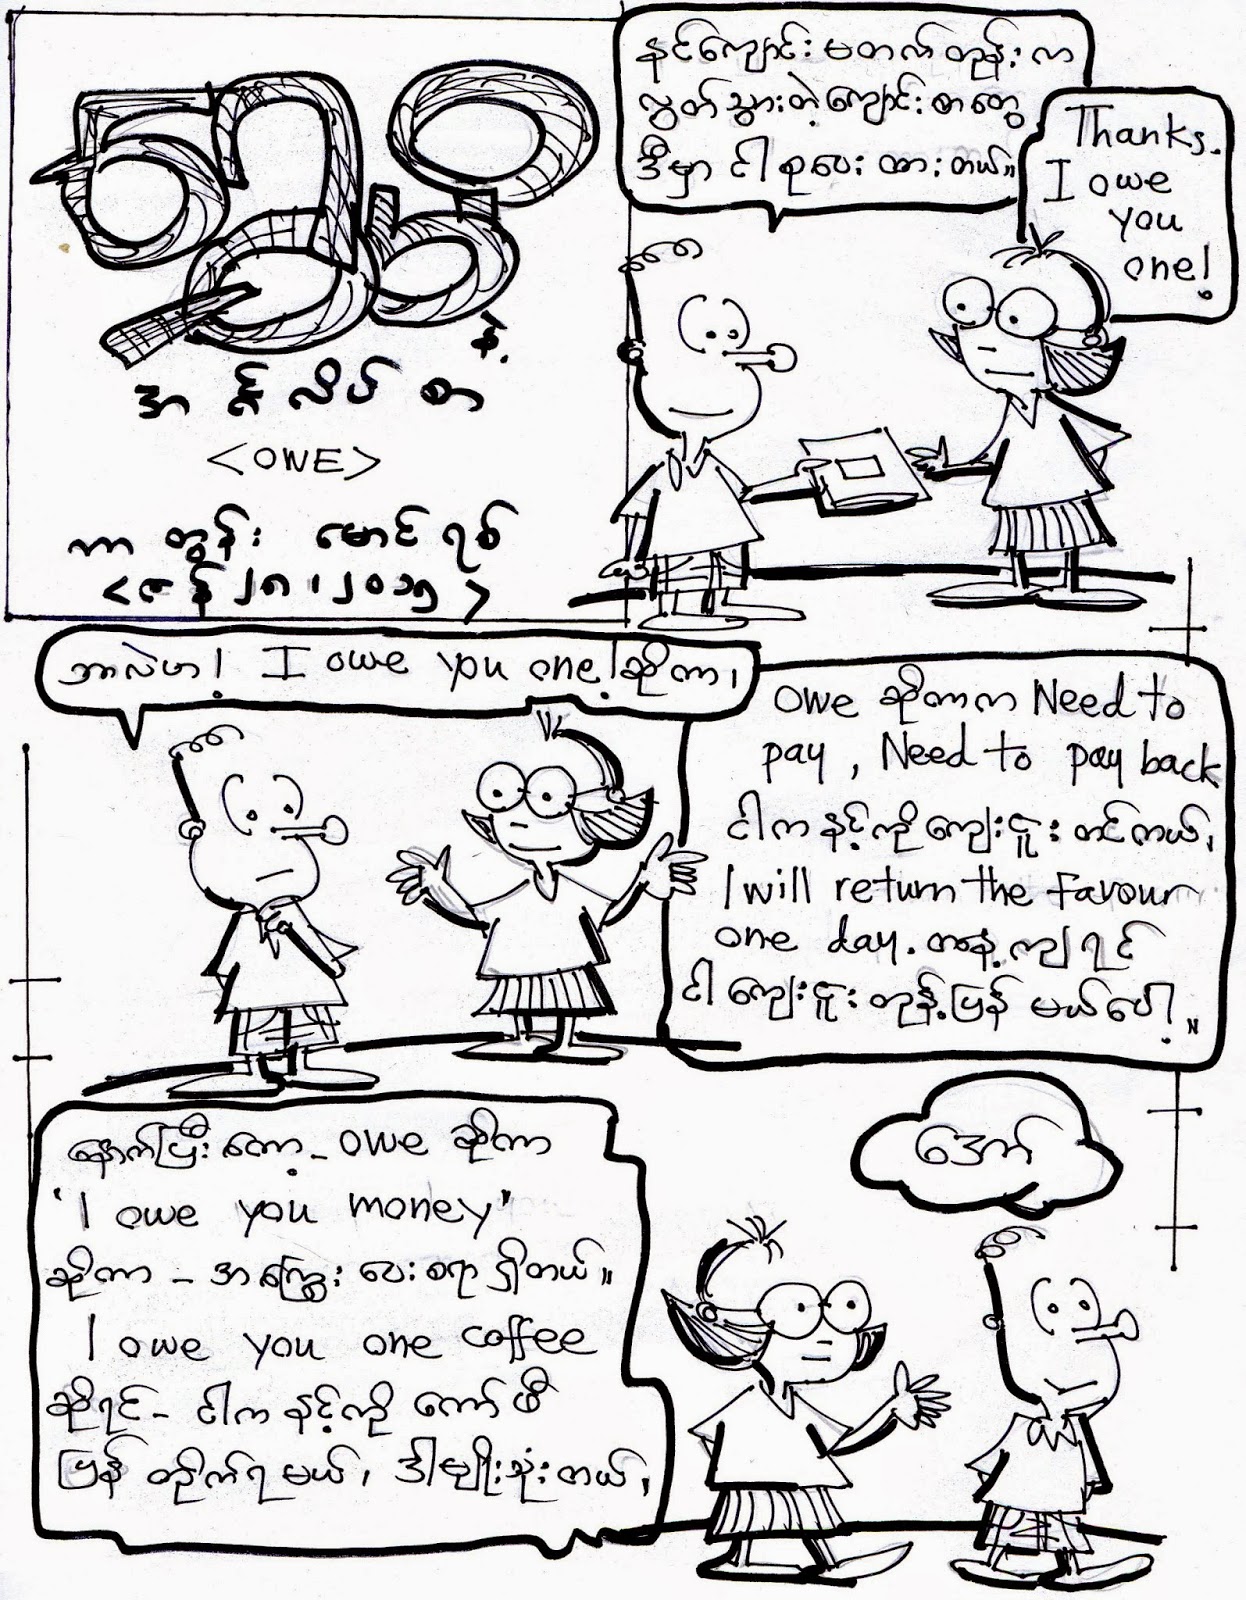 နဲ့
အင်္ဂလိပ် စာ
<OWE>
ကာတွန်း မောင်ရစ်
<ဇန် ၂၈၊ ၂၀၁၅>
နင်ကျောင်း မတက်တုန်းက
လွတ်သွားတဲ့ကျောင်းစာတွေ
ဒီမှာ ငါစုပေး ထားတယ်။
Thanks.
I owe
you
one!
ဘာလဲဟ! I owe you one!ဆိုတာ၊
Owe ဆိုတာက Need to
pay, Need to pay back
ငါက နင့်ကိုကျေးဇူးတင်တယ်၊
I will return the favour
one day. တနေ့ကျရင်
ငါကျေးဇူးတုန့်ပြန် မယ်ပေါ့။
နောက်ပြီးတော့_ owe ဆိုတာ
"I owe you money"
ဆိုတာ - အကြွေး ပေးစရာရှိတယ်။
I owe you one coffee
ဆိုရင်- ငါက နင့်ကို ကော်ဖီ
ပြန် တိုက်ရမယ်၊ ဒါမျိုးသုံးတယ်၊
ဒေါက်